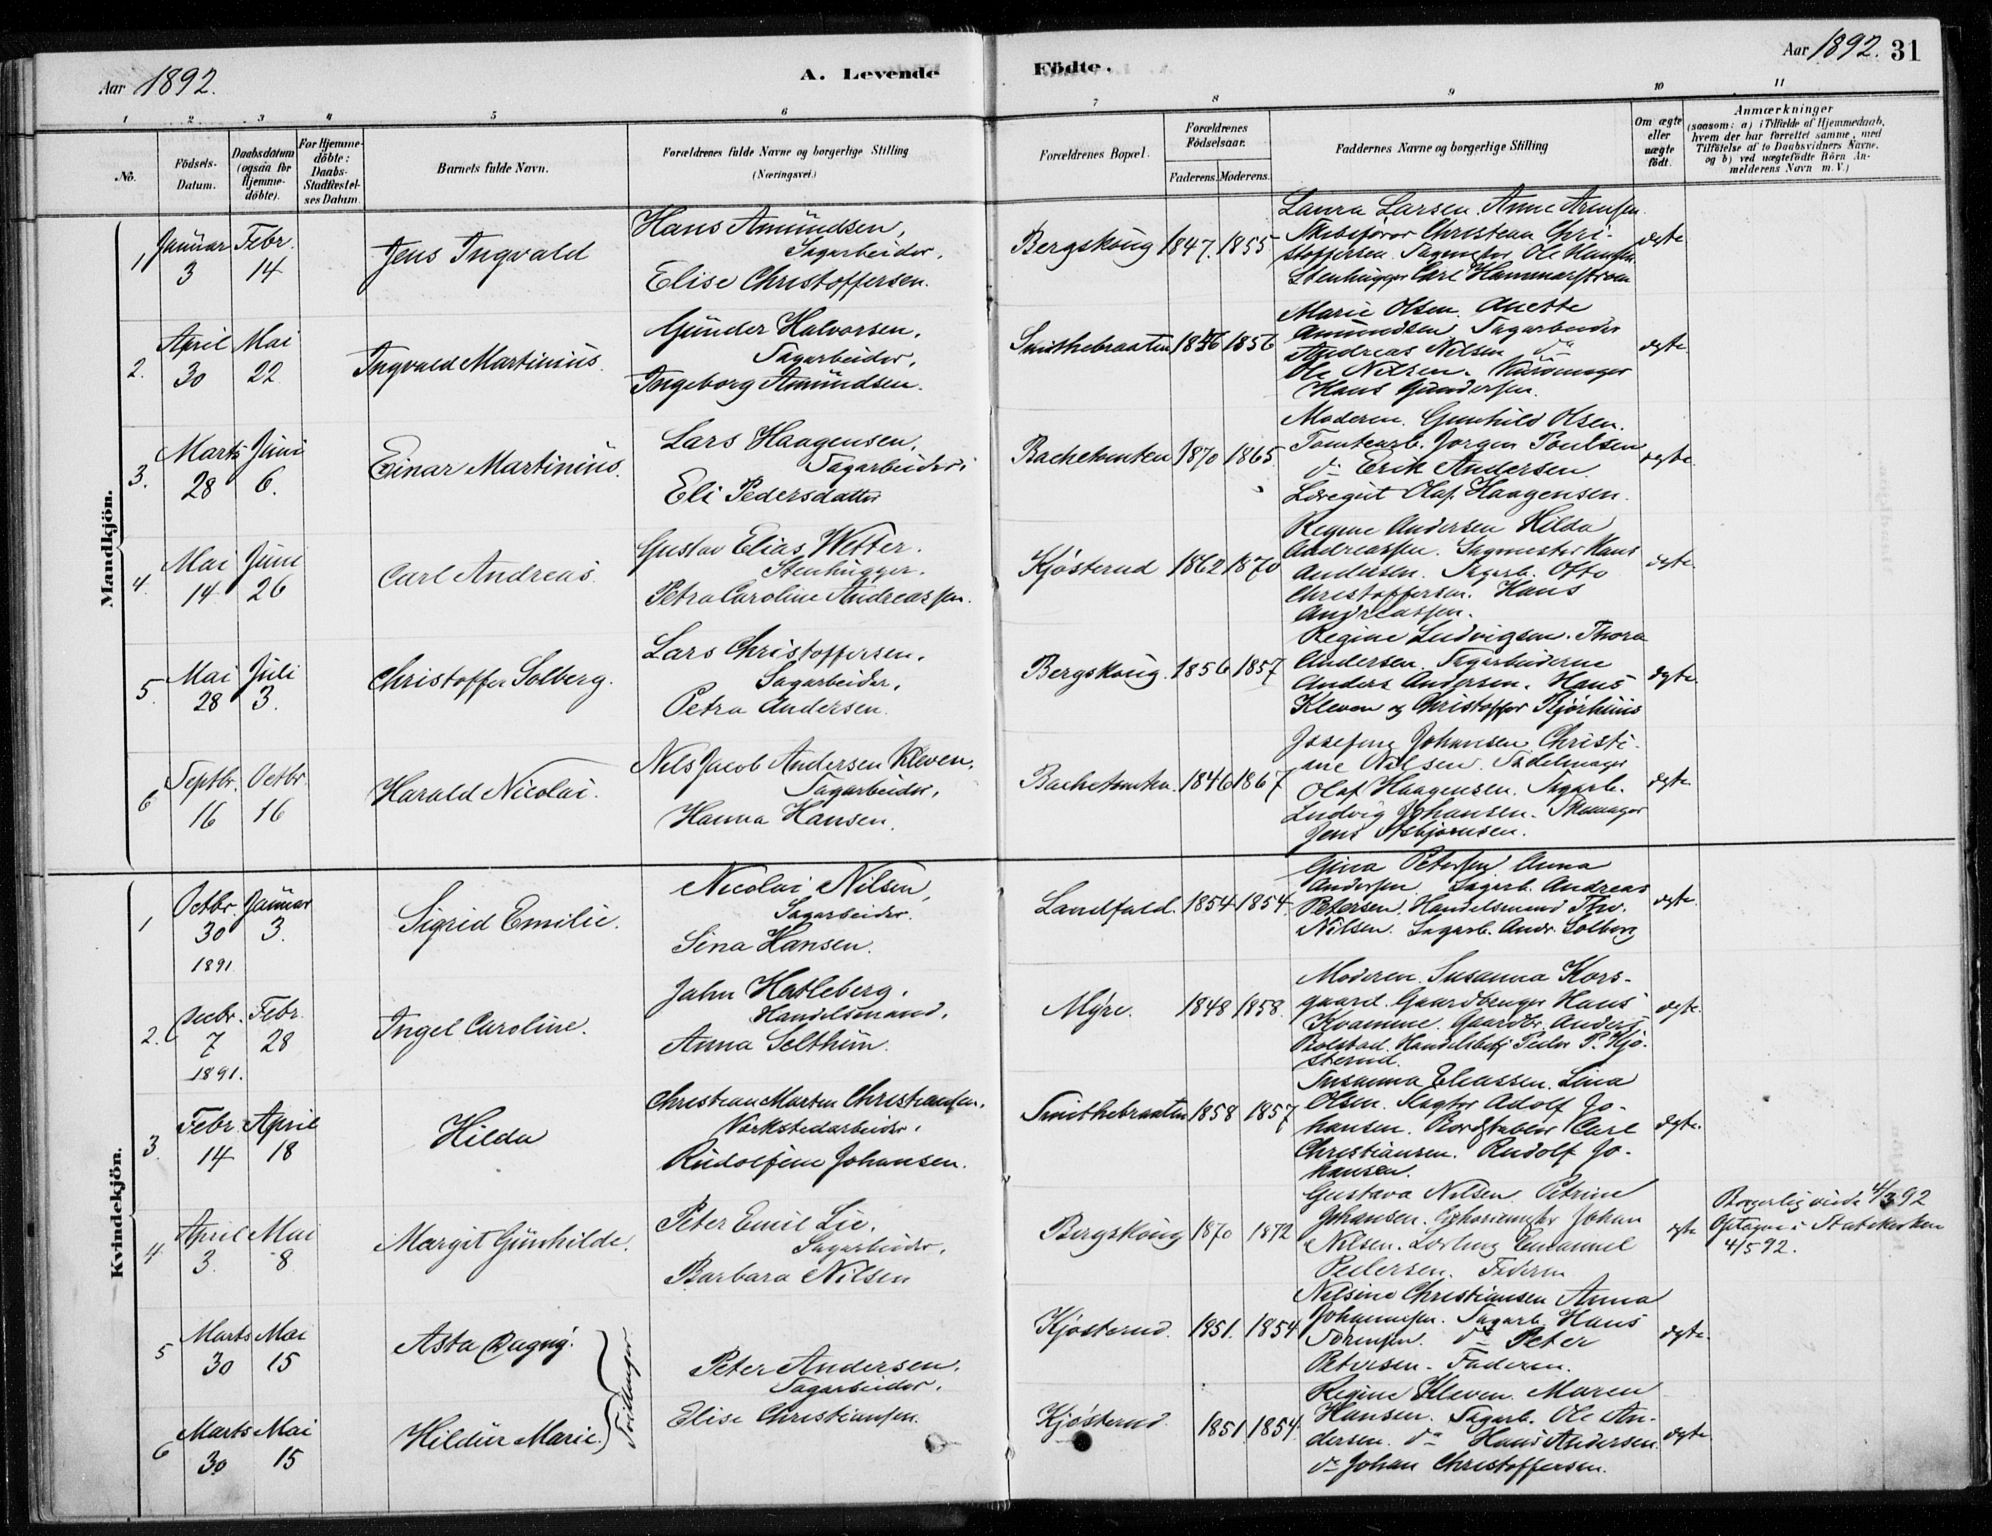 Aar 1892.
A. Levende
Födte.
Aar 1892. 31
1 2 3 4 5 6 7 8 9 10 11
No.
Födsels-
Datum.
Daabsdatum
(ogsaa for
Hjemme-
döbte).
For Hjemme-
döbte:
Daabs-
Stadfæstel-
ses Datum.
Barnets fulde Navn.
Forældrenes fulde Navne og borgerlige Stilling
(Næringsvei.)
Forældrenes Bopæl.
Forældrenes
Födselsaar.
Faderens. Moderens.
Faddernes Navne og borgerlige Stilling
Om ægte
eller
uægte
födt.
Anmærkninger
(saasom: a) i Tilfælde af Hjemmedaab,
hvem der har forrettet samme, med
Tilföielse af to Daabsvidners Navne,
og b) ved uægtefödte Börn An-
melderens Navn m. V.)
Mandkjön.
1, Januar 3 Febr. 14
Jens Ingvald
Hans Amundsen,
Sagarbeider,
Elise Christoffersen.
Bergskoug 1847. 1855
Laura Larsen. Anne
Skibsfører Christian Chri-
stoffersen. Ole
Stenhugger Carl Hammarstrøm
ægte
2. April 30 Mai 22
Ingvald Martinius.
Günder Halvorsen,
Sagarbeider,
Ingeborg Amundsen.
Smithebraaten 1856
Marie Olsen. Anette
Amundsen Sagarbeider
Andreas Nilsen do
Ole Nilsen.
Hans Gundersen.
ægte
3. Marts 28 Juni 6.
Einar Martinius.
Lars Haagensen,
Sagarbeider,
Eli Pedersdatter
Bachetomten 1870 1865.
Moderen. Gunhild Olsen.
Tomtearb. Jørgen Poulsen
do Erik Andersen
Læregut Olaf Haagensen.
ægte.
4. Mai 14 Juni 26
Carl Andreas.
Gustav Elias Wetter.
Stenhugger.
Petra Caroline Andreassen.
Kjøsterud 1862 1870
Regine Andersen Hilda
Andreassen. Sagmester Hans
Andersen. Sagarb. Otto
Christoffersen. Hans
Andreassen.
ægte
5. Mai 28 Juli 3.
Christoffer Solberg.
Lars Christoffersen.
Sagarbeider,
Petra Andersen
Bergskoug. 1856 1857
Regine Ludvigsen. Thora
Andersen. Sagarbeiderne
Anders Andersen. Hans
Kleven og Christoffer
ægte.
6 Septbr. 16 Octbr. 16
Harald Nicolai.
Nils Jacob Andersen Kleven,
Sagarbeider,
Hanna Hansen.
Bachetomten. 1846 1867
Josefine Johansen Christi-
ane Nilsen. Sadelmager
Olaf Haagensen. Sagarb.
Ludvig Johansen. Skomager
Jens Asbjørnsen.
ægte.
Kvindekjön.
1 Octbr. 30 1891 Januar 3.
Sigrid Emilie.
Nicolai Nilsen,
Sagarbeider.
Sina Hansen.
Landfald. 1854 1854.
Gina Petersen Anna
Andersen. Sagarb. Andreas
Petersen. Handelsmand Thv.
Nilsen. Sagarb. Andr. Solberg
ægte.
2. Decbr. 7 1891. Febr. 28
Ingel Caroline.
John Hatleberg.
Handelsmand,
Anna Selthun.
Myre. 1848 1858.
Moderen. Susanna Kors-
gaard. Gaardbruger Hans
Kvamme. Gaardbr. Anders
Bolstad. Handelsbetj Peder P. Kjø-
sterud.
ægte.
3. Febr. 14 April 18
Hilda
Christian Morten Christiansen,
Værkstedarbeider,
Rudolfine Johansen.
Smithebraaten 1858 1857
Susanna Eliassen. Lina
Olsen. Adolf Jo-
hansen. Carl
Christiansen. Rudolf Jo-
hansen.
ægte.
4. April 3. Mai 8
Margit Gunhilde.
Peter Emil Lie.
Sagarbeider,
Barbara Nilsen
Bergskoug 1870 1872
Gustava Nilsen Petrine
Johansen. Johan
Nilsen. Lærling Emanuel
Pedersen. Faderen
ægte
Borgerlig viede 4/3 92
Optagne i Statskirken
4/5 92.
5 Marts 30 Mai 15
Asta Dagny.
6 Marts 30 Mai 15
Hildur Marie.
Tvillinger
Peter Andersen,
Sagarbeider,
Elise Christiansen.
Kjøsterud. 1851. 1854
Nilsine Christiansen Anna
Johannesen. Sagarb. Hans
Sørensen. do Peter
Petersen. Faderen.
ægte.
Kjøsterud 1851 1854.
Regine Kleven. Maren
Hansen. Sagarb. Ole An-
dersen. do Hans Andersen.
do Johan Christoffersen.
ægte